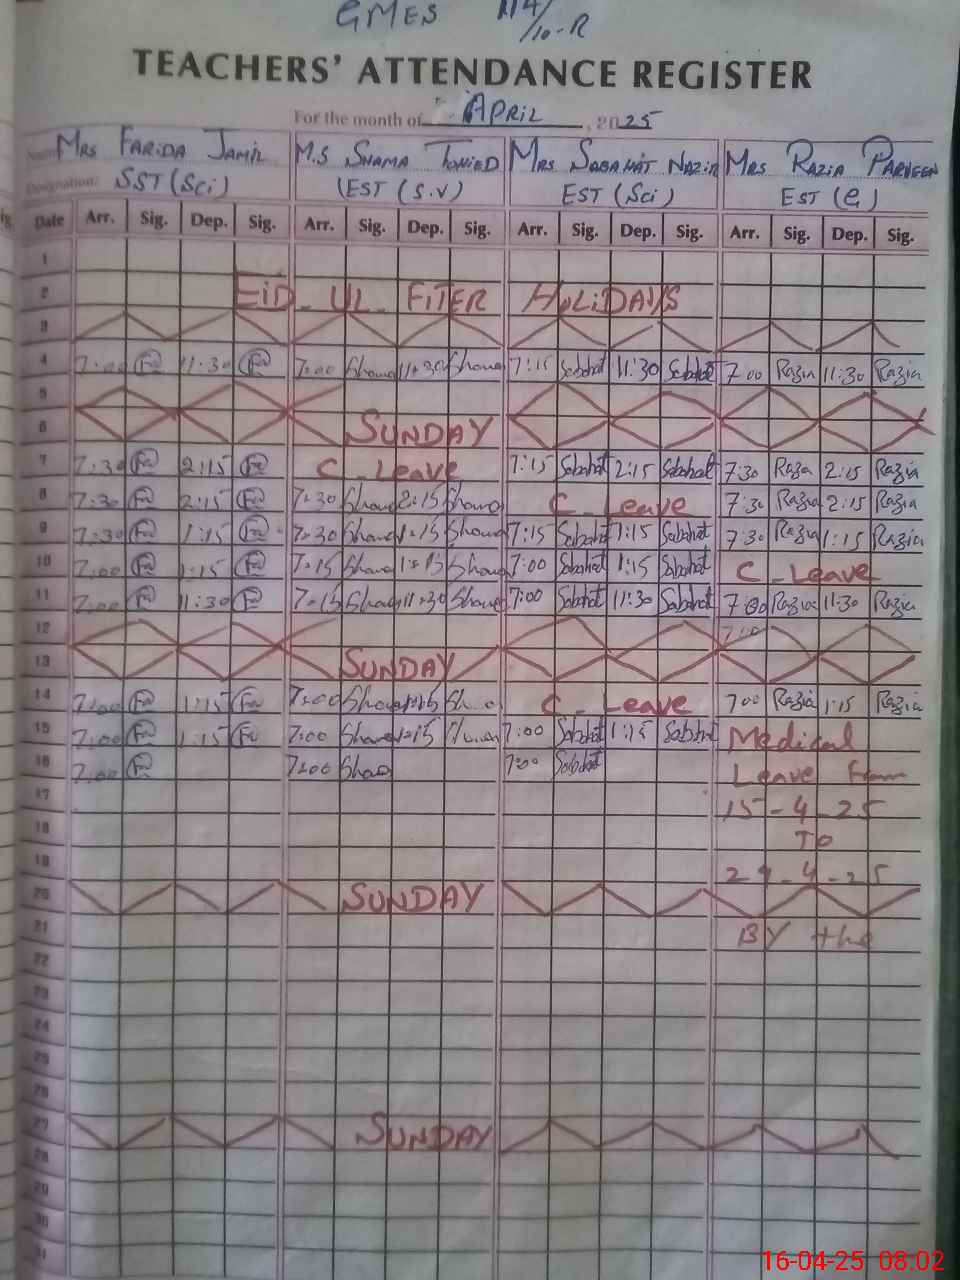 GMES 114/10-R
TEACHERS' ATTENDANCE REGISTER
For the month of April, 2025
Name: Mrs Farida Jamil M.S Shama Mrs Sabahat Nazir Mrs Razia Parveen
Designation: SST (Sci) EST (S.V) EST (Sci) EST (G)
Date Arr. Sig. Dep. Sig. Arr. Sig. Dep. Sig. Arr. Sig. Dep. Sig. Arr. Sig. Dep. Sig.
1
2 EID_UL_FITER HOLIDAYS
3
4 7:00 11:30 7:00 Shama 11:30 Shama 7:15 Sabahat 11:30 Sabahat 7:00 Razia 11:30 Razia
5
6 SUNDAY
7 7:30 2:15 C_Leave 7:15 Sabahat 2:15 Sabahat 7:30 Razia 2:15 Razia
8 7:30 2:15 7:30 Shama 2:15 Shama C_Leave 7:30 Razia 2:15 Razia
9 7:30 1:15 7:30 Shama 1:15 Shama 7:15 Sabahat 1:15 Sabahat 7:30 Razia 1:15 Razia
10 7:00 1:15 7:15 Shama 1:15 Shama 7:00 Sabahat 1:15 Sabahat C_Leave
11 7:00 11:30 7:15 Shama 11:30 Shama 7:00 Sabahat 11:30 Sabahat 7:00 Razia 11:30 Razia
12 7:00
13 SUNDAY
14 7:00 1:15 7:00 Shama 1:15 Shama C_Leave 7:00 Razia 1:15 Razia
15 7:00 1:15 7:00 Shama 1:15 Shama 7:00 Sabahat 1:15 Sabahat Medical
16 7:00 7:00 Shama 7:00 Sabahat Leave From
17 15-4-25
18 To
19 29-4-25
20 SUNDAY
21 BY the
22
23
24
25
26
27 SUNDAY
28
29
30
31
16-04-25 08:02